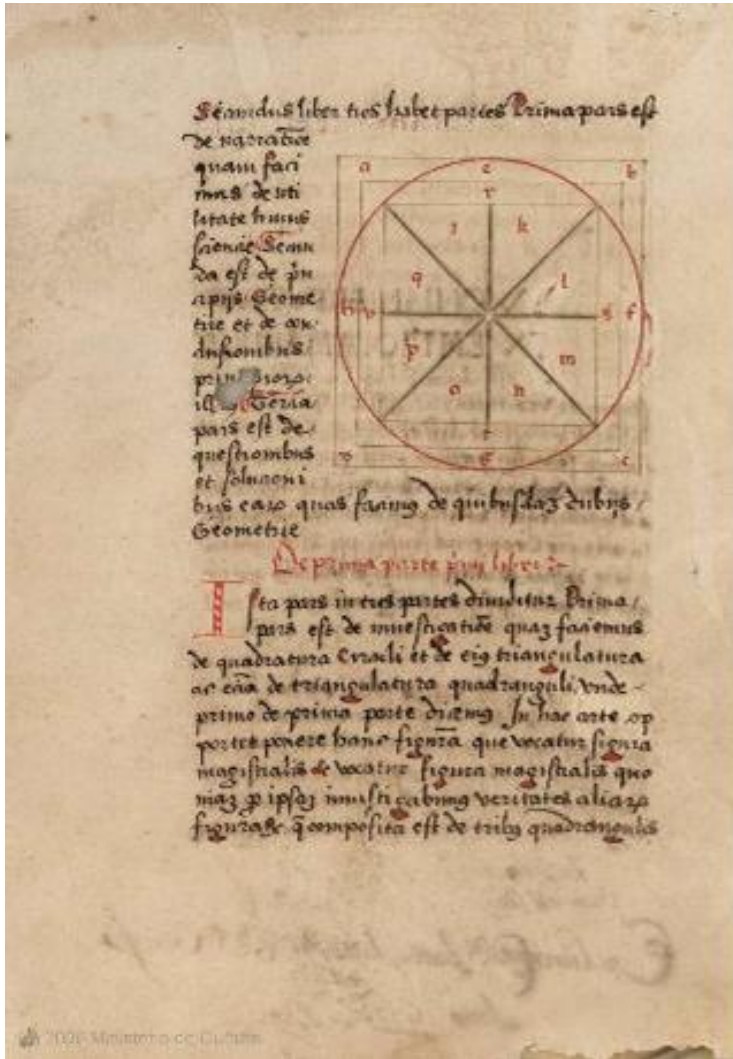 Secundus liber tres habet partes Prima pars est
de narratiõe
quam faci
mus de uti
litate huius
sciencie Secun
da est de pñ
cipijs Geome
trie et de con
clusionibus
principiorũ
illis Tercia
pars est de
questionibus
et solucioni
bus earũ quas facimꝰ de quibusdaz dubijs
Geometrie
a e b
r
i k
q l
h v s f
p m
o n
t
d g c
De prima parte p̃mi libri
Ista pars in tres partes diuiditur Prima
pars est de inuestigatiõe quaz faciemus
de quadratura Circuli et de eiꝰ triangulatura
ac eciã de triangulatura quadranguli, vnde
primo de prima parte dicemꝰ In hac arte op
portet ponere hanc figurã que vocatur figura
magistralis et vocatur figura magistralis quo
niaz ꝑ ipsaz inuestigabimꝰ veritates aliarũ
figurarũ q̃ composita est de tribꝰ quadrangulis
2006 Ministerio de Cultura